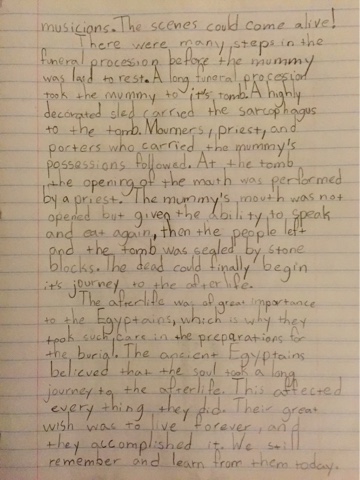 musicions. The scenes could come alive!
There were many steps in the
funeral procession before the mummy
was laid to rest. A long funeral procesion
took the mummy to it's tomb. A highly
decorated sled carried the sarcophagus
to the tomb. Mourners, priest, and
portors who carried the mummy's
possessions followed. At the tomb,
the opening of the mouth was performed
by a priest. The mummy's mouth was not
opened but given the ability to speak
and eat again, then the people left
and the tomb was sealed by stone
blocks. The dead could finally begin
it's journey to the afterlife.
The afterlife was of great importance
to the Egyptains, which is why they
took such care in the preparations for
the burial. The ancient Egyptains
believed that the soul took a long
journey to the afterlife. This affected
every thing they did. Their great
wish was to live forever, and
they accomplished it. We still
remember and learn from them today.